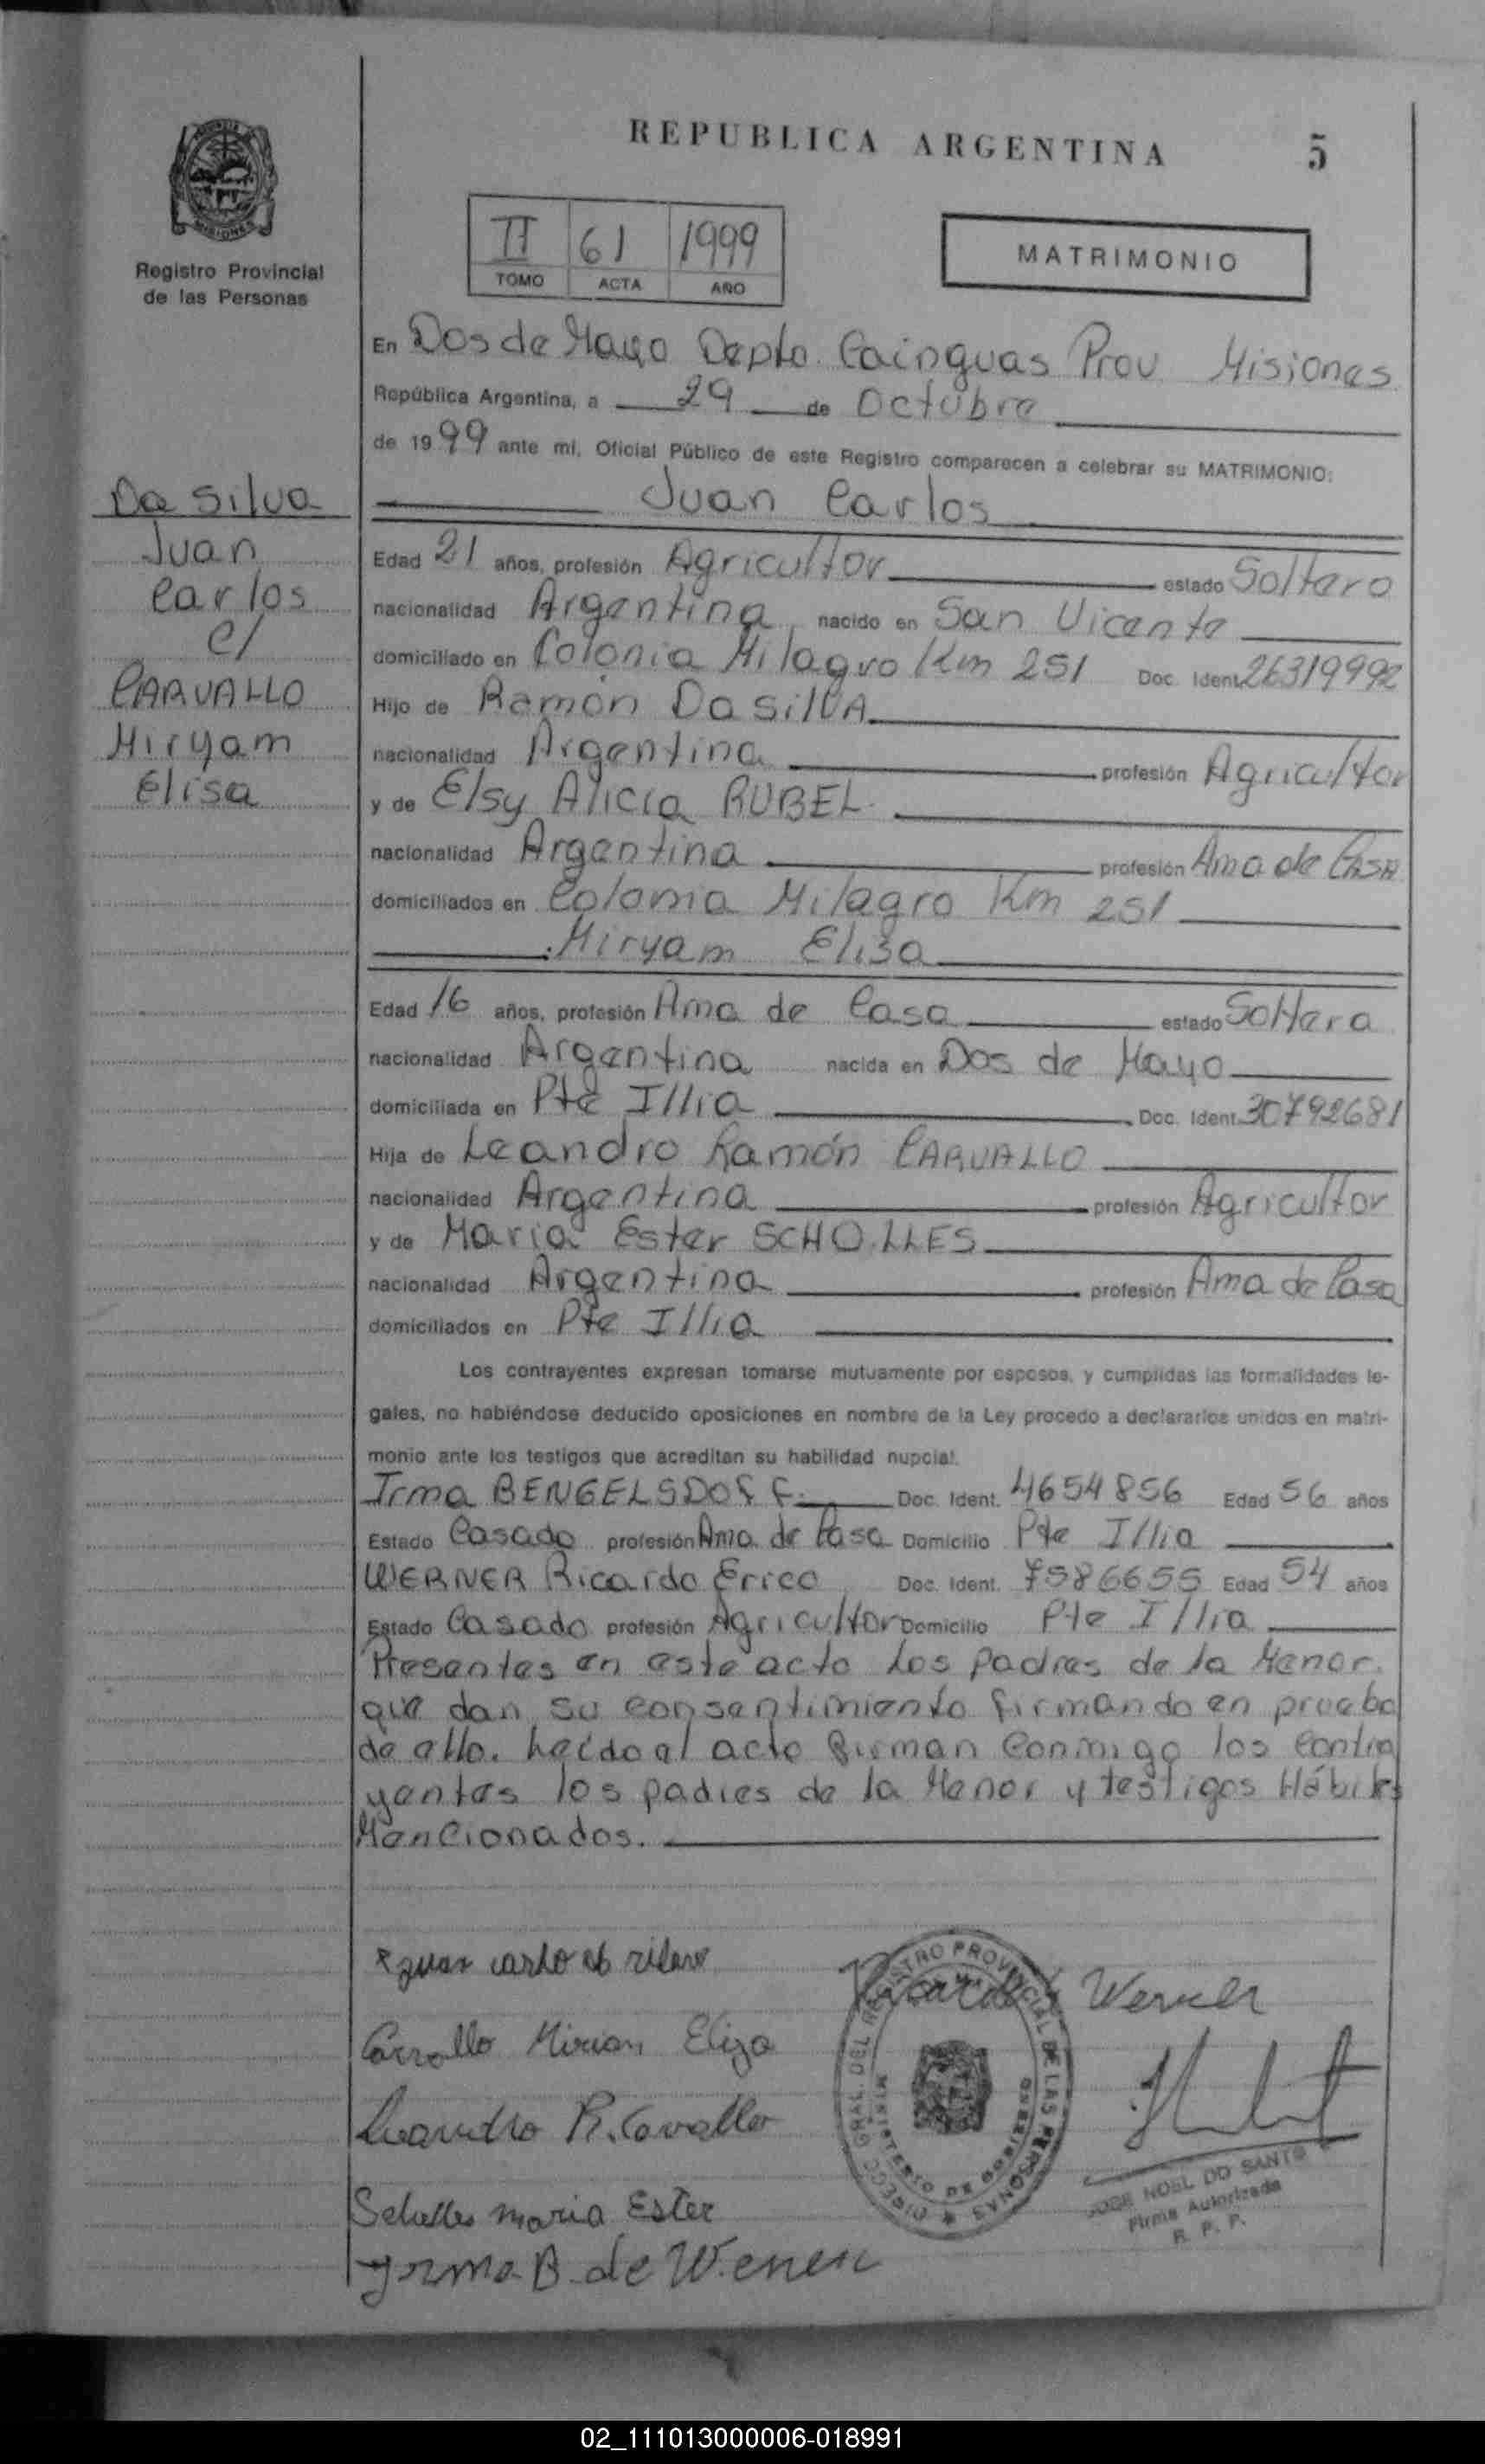 REPUBLICA ARGENTINA 5
MISIONES
Registro Provincial
de las Personas
II 61 1999
TOMO ACTA AÑO
MATRIMONIO
En Dos de Mayo Depto. Cainguas Prov Misiones
República Argentina, a 29 de Octubre
de 1999 ante mi, Oficial Público de este Registro comparecen a celebrar su MATRIMONIO:
Da Silva
Juan
Carlos
c/
CARVALLO
Miryam
Elisa
Juan Carlos
Edad 21 años, profesión Agricultor estado Soltero
nacionalidad Argentina nacido en San Vicente
domiciliado en Colonia Milagro Km 251 Doc. Ident. 26319992
Hijo de Ramón Da SilVA
nacionalidad Argentina profesión Agricultor
y de Elsy Alicia RUBEL
nacionalidad Argentina profesión Ama de Casa
domiciliados en Colonia Milagro Km 251
Miryam Elisa
Edad 16 años, profesión Ama de Casa estado Soltera
nacionalidad Argentina nacida en Dos de Mayo
domiciliada en Pte Illia Doc. Ident. 30792681
Hija de Leandro Ramón CARVALLO
nacionalidad Argentina profesión Agricultor
y de Maria Ester SCHOLLES
nacionalidad Argentina profesión Ama de Casa
domiciliados en Pte Illia
Los contrayentes expresan tomarse mutuamente por esposos, y cumplidas las formalidades le-
gales, no habiéndose deducido oposiciones en nombre de la Ley procedo a declararlos unidos en matri-
monio ante los testigos que acreditan su habilidad nupcial.
Irma BENGELSDOFF. Doc. Ident. 4654856 Edad 56 años
Estado Casado profesión Ama de Casa Domicilio Pte Illia
WERNER Ricardo Erico Doc. Ident. 7586655 Edad 54 años
Estado Casado profesión Agricultor Domicilio Pte Illia
Presentes en este acto los padres de la Menor
que dan su consentimiento firmando en prueba
de ello. Leido el acto firman conmigo los contra
yentes los padres de la Menor y testigos Hábiles
Mencionados.
Ricardo Werner
Carvallo Mirian Eliza
Leandro R. Carvallo
Scholles maria Ester
yrma B. de Werner
DIREC. GRAL. DEL REGISTRO PROVINCIAL DE LAS PERSONAS
MINISTERIO DE GOBIERNO
JOSE NOEL DO SANTO
Firma Autorizada
R. P. P.
02_111013000006-018991